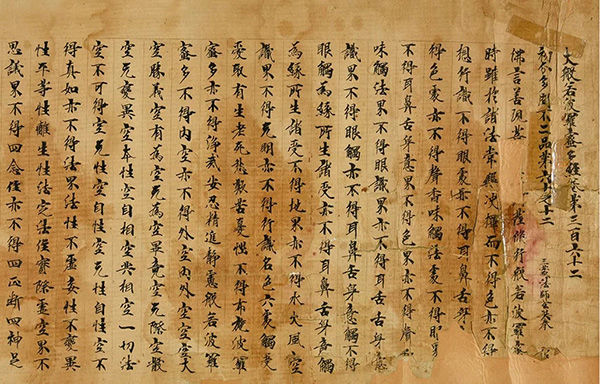 大般若波羅蜜多經卷第三百六十二
初分多問不二品第六十一之十二
三藏法師玄奘
佛言善現 薩修行般若波羅蜜
時雖於諸法常極決擇而不得色亦不得
想行識不得眼處亦不得耳鼻舌身
得色處亦不得聲香味觸法處不得眼界
不得耳鼻舌身意界不得色界亦不得聲香
味觸法界不得眼識界亦不得耳鼻舌身意
識界不得眼觸亦不得耳鼻舌身意觸不得
眼觸為緣所生諸受亦不得耳鼻舌身意觸
為緣所生諸受不得地界亦不得水火風空
識界不得无明亦不得行識名色六處觸受
愛取有生老死愁歎苦憂惱不得布施波羅
蜜多亦不得淨戒安忍精進靜慮般若波羅
蜜多不得內空亦不得外空內外空空空大
空勝義空有為空无為空畢竟空无際空散
空无變異空本性空自相空共相空一切法
空不可得空无性空自性空无性自性空不
得真如亦不得法界法性不虛妄性不變異
性平等性離生性法定法住實際虛空界不
思議界不得四念住亦不得四正斷四神足